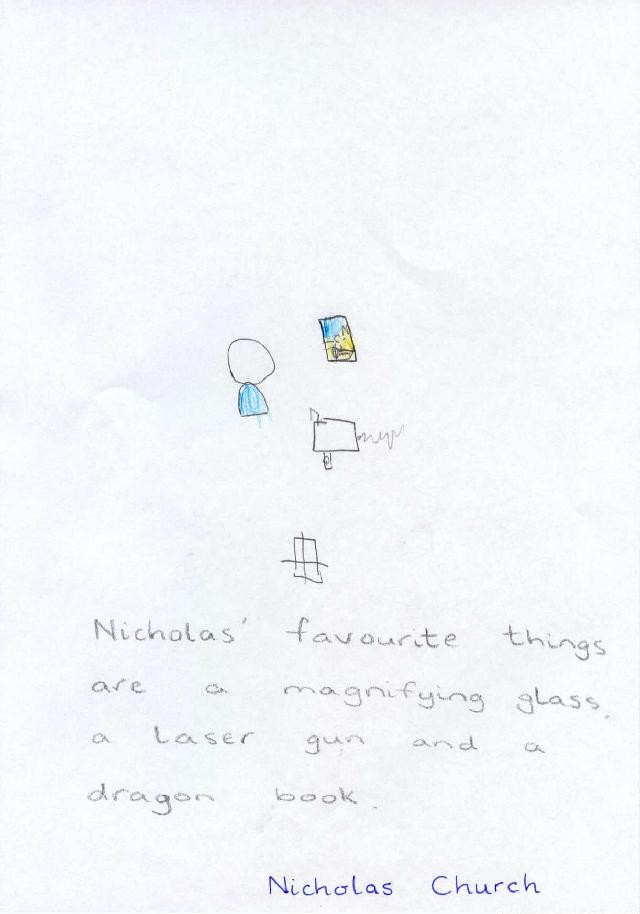 Nicholas' favourite things
are a magnifying glass,
a laser gun and a
dragon book.
Nicholas Church